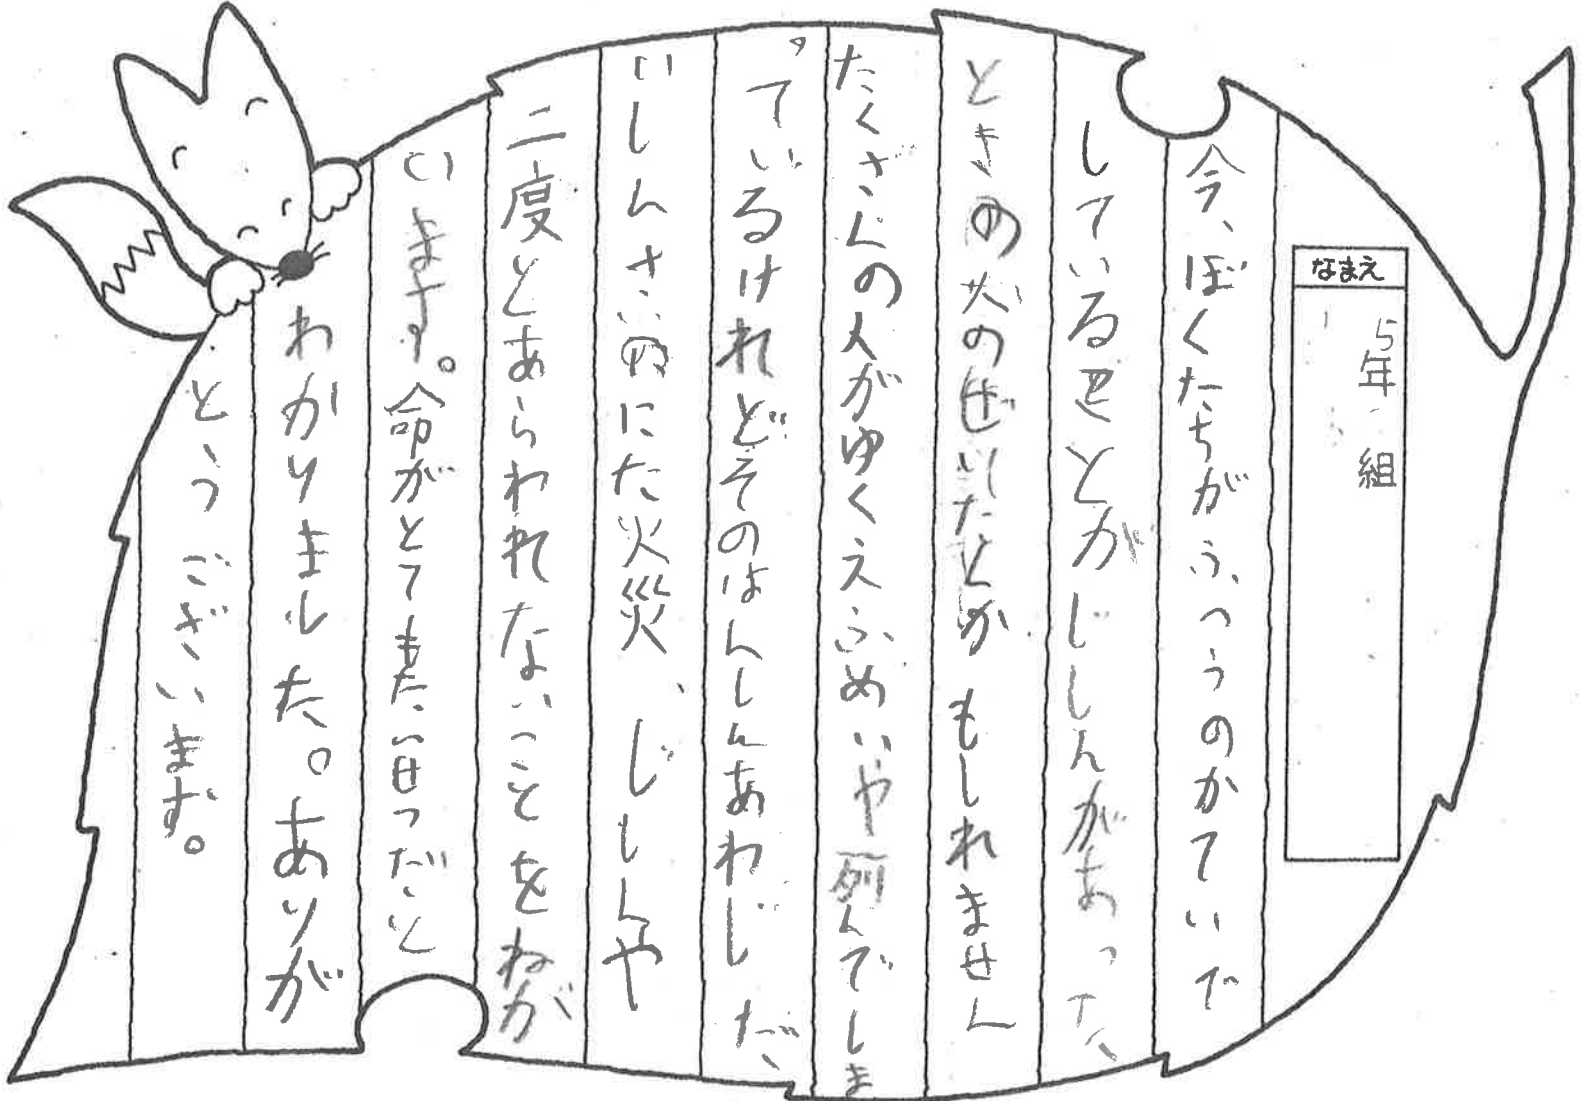 なまえ
5年 組
今、ぼくたちがふつうのかていで
していることがじしんがあった
ときの火のせいだとかもしれません
たくさんの人がゆくえふめいや死んでしま
っているけれどそのはんしんあわじだ
いしんさいのにた火災、じしんや
二度とあらわれないことをねが
います。命がとてもたいせつだと
わかりました。ありが
とうございます。